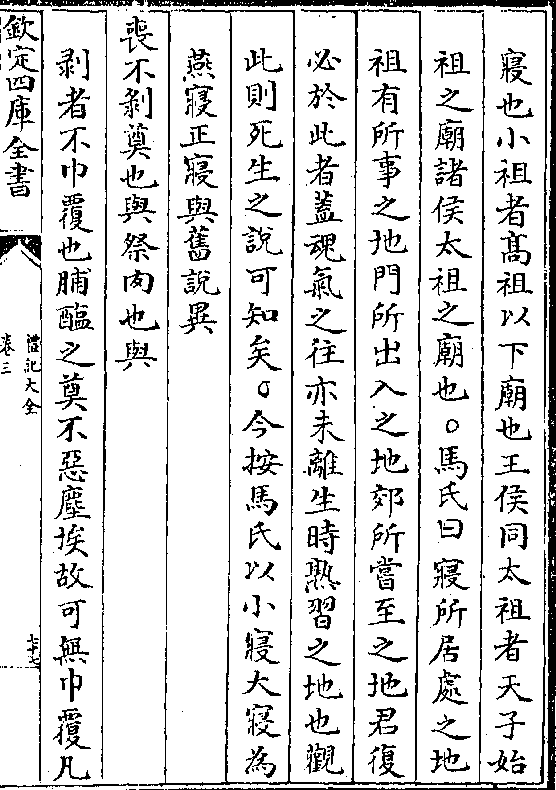 寢也小祖者髙祖以下廟也王侯同太祖者天子始
祖之廟諸侯太祖之廟也○馬氏曰寢所居處之地
祖有所事之地門所出入之地郊所嘗至之地君復
必於此者蓋魂氣之往亦未離生時熟習之地也觀
此則死生之說可知矣○今按馬氏以小寢大寢為
燕寢正寢與舊說異
喪不剝奠也與祭肉也與
剥者不巾覆也脯醢之奠不惡塵埃故可無巾覆凡
欽定四庫全書
禮記大全
卷三
七十七